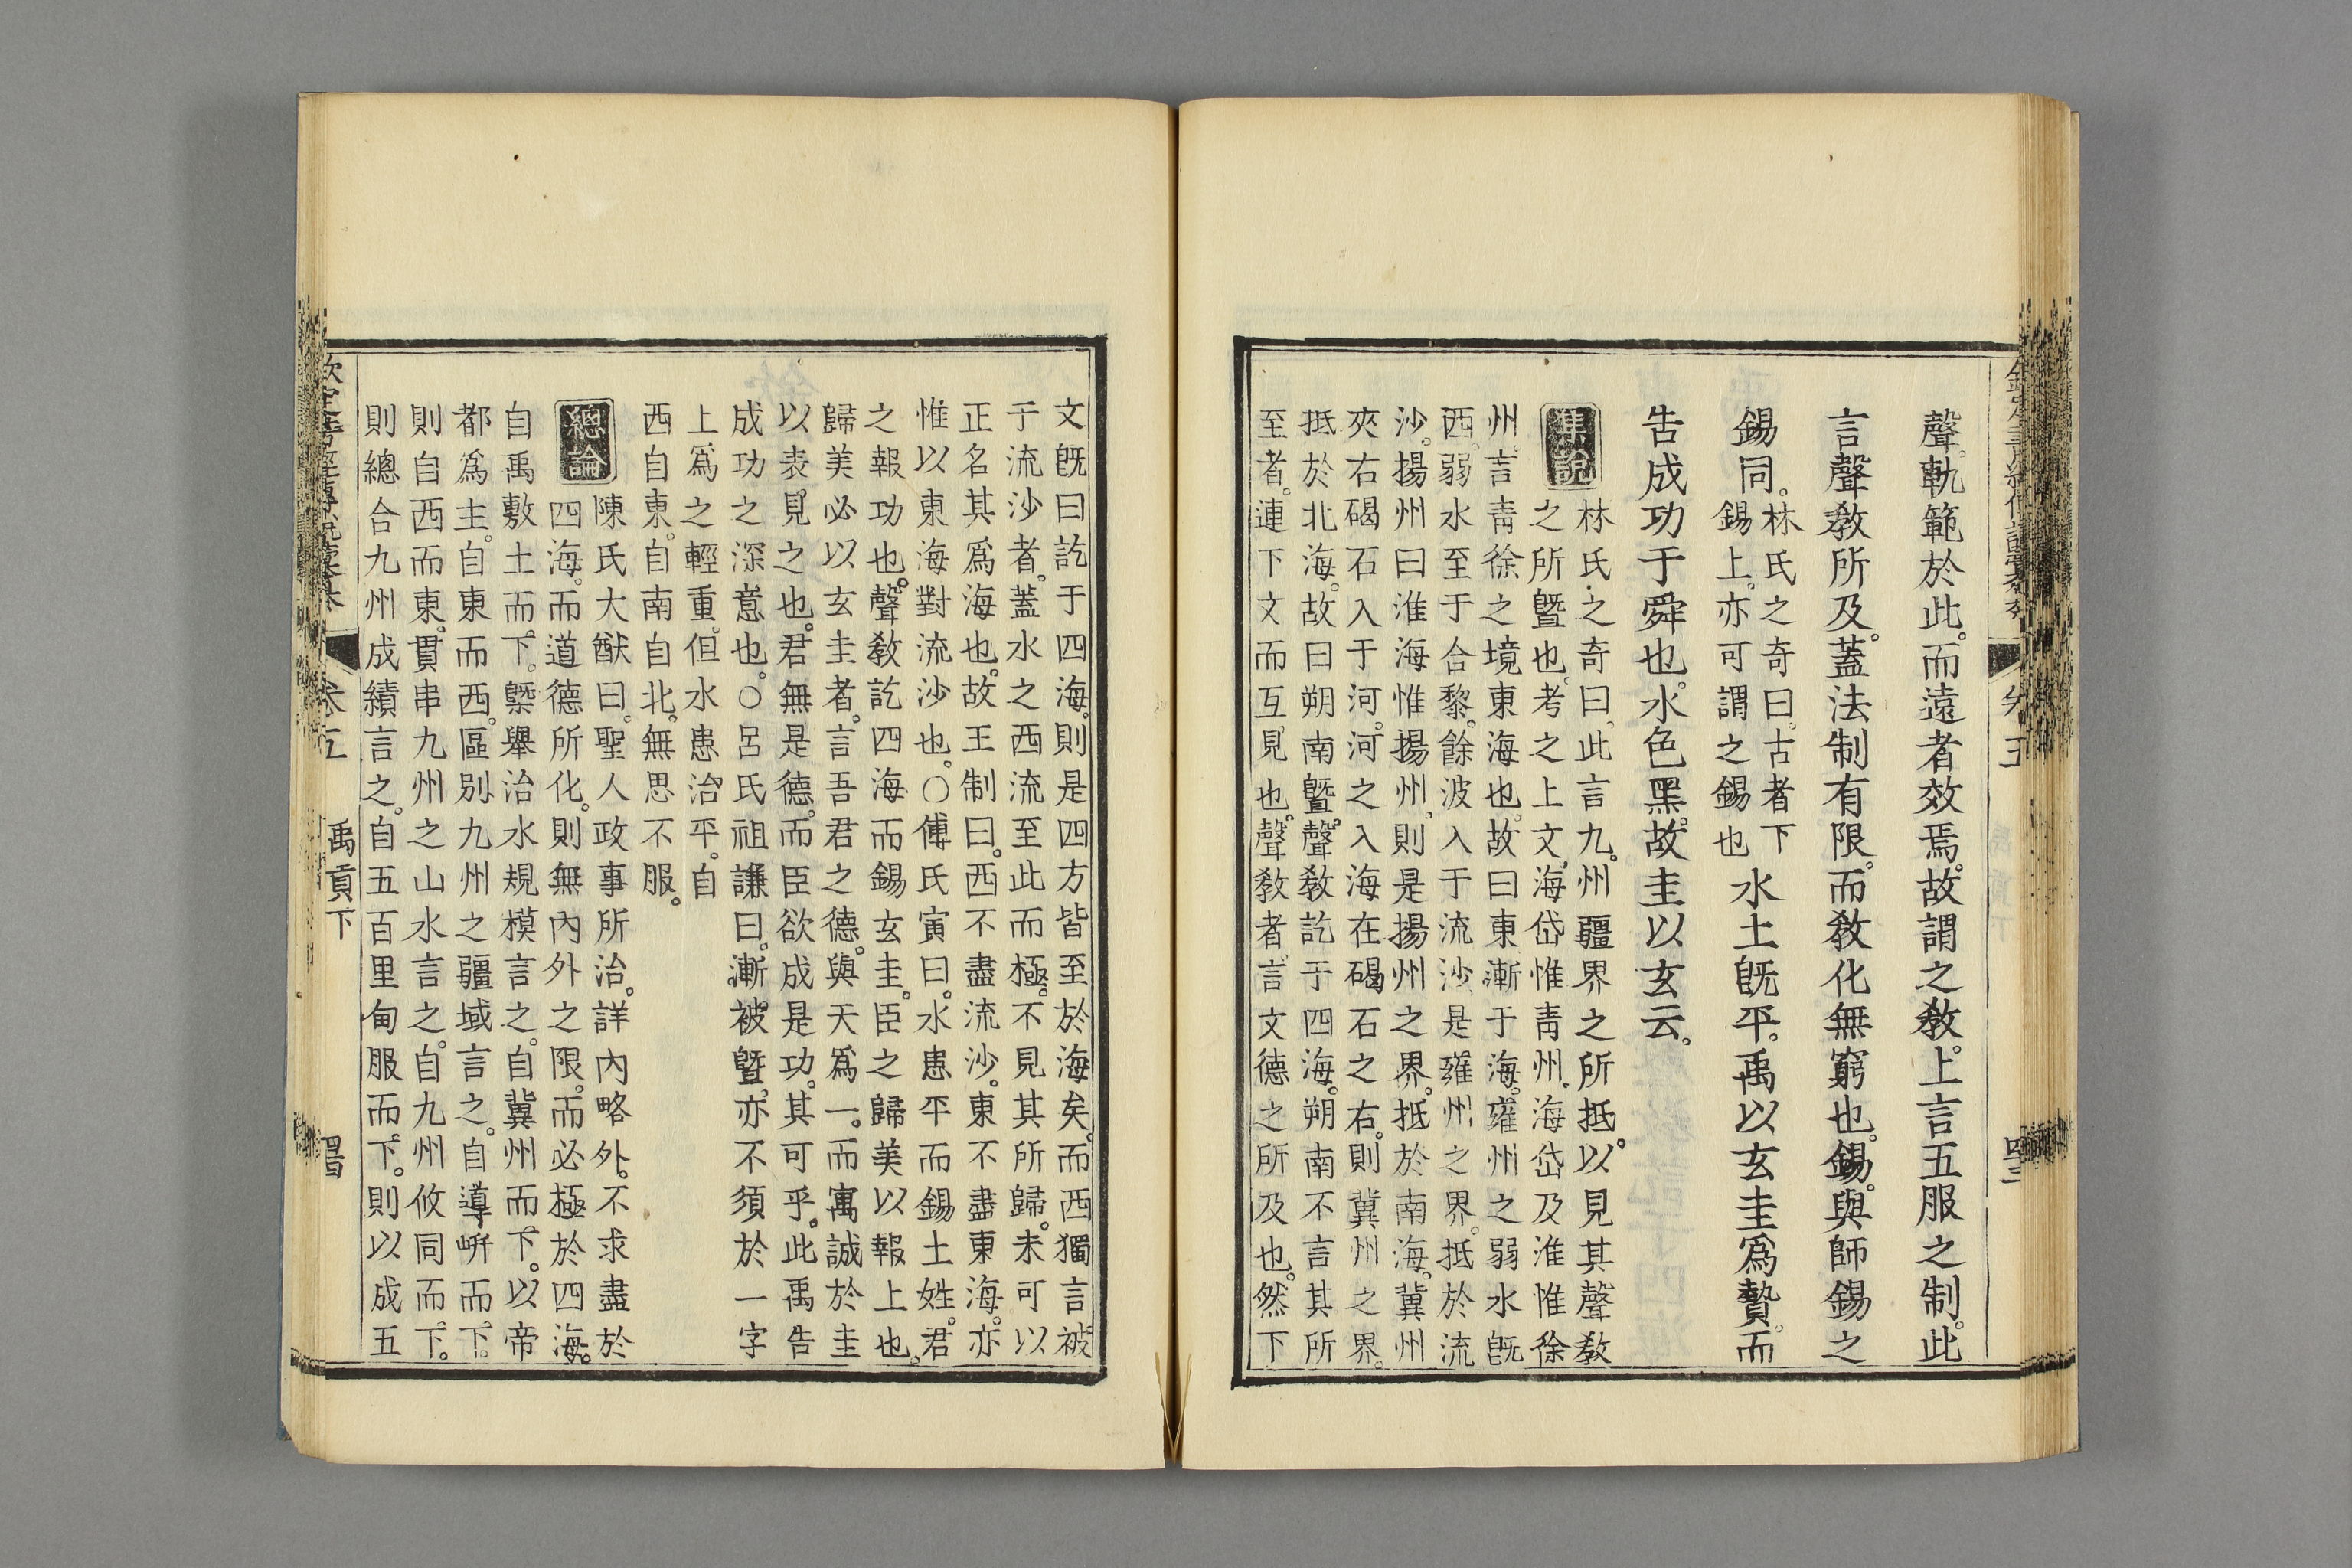 聲。軌範於此。而遠者效焉。故謂之敎。上言五服之制。此
言聲敎所及。蓋法制有限。而敎化無窮也。錫。與師錫之
錫同。
林氏之奇曰。古者下
錫上。亦可謂之錫也
水土旣平。禹以玄圭爲贄。而
告成功于舜也。水色黑。故圭以玄云。
集說
林氏之奇曰。此言九州疆界之所抵。以見其聲敎
之所曁也。考之上文。海岱惟靑州。海岱及淮惟徐
州。言靑徐之境東海也。故曰東漸于海。雍州之弱水旣
西。弱水至于合黎。餘波入于流沙。是雍州之界。抵於流
沙。揚州曰淮海惟揚州。則是揚州之界。抵於南海。冀州
夾右碣石入于河。河之入海在碣石之右。則冀州之界。
抵於北海。故曰朔南曁。聲敎訖于四海。朔南不言其所
至者。連下文而互見也。聲敎者。言文德之所及也。然下
文旣曰訖于四海。則是四方皆至於海矣。而西獨言被
于流沙者。蓋水之西流至此而極。不見其所歸。未可以
正名其爲海也。故王制曰。西不盡流沙。東不盡東海。亦
惟以東海對流沙也。○傅氏寅曰。水患平而錫土姓。君
之報功也。聲敎訖四海而錫玄圭。臣之歸美以報上也。
歸美必以玄圭者。言吾君之德。與天爲一。而寓誠於圭
以表見之也。君無是德。而臣欲成是功。其可乎。此禹告
成功之深意也。○呂氏祖謙曰。漸。被。曁。亦不須於一字
上爲之輕重。但水患治平。自
西自東。自南自北。無思不服。
總論
陳氏大猷曰。聖人政事所治。詳內略外。不求盡於
四海。而道德所化。則無內外之限。而必極於四海。
自禹敷土而下。槩舉治水規模言之。自冀州而下。以帝
都爲主。自東而西。區別九州之疆域言之。自導岍而下。
則自西而東。貫串九州之山水言之。自九州攸同而下。
則總合九州成績言之。自五百里甸服而下。則以成五
卷五
禹貢下